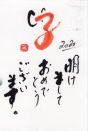 2020
明けまして
おめでとう
ございます。